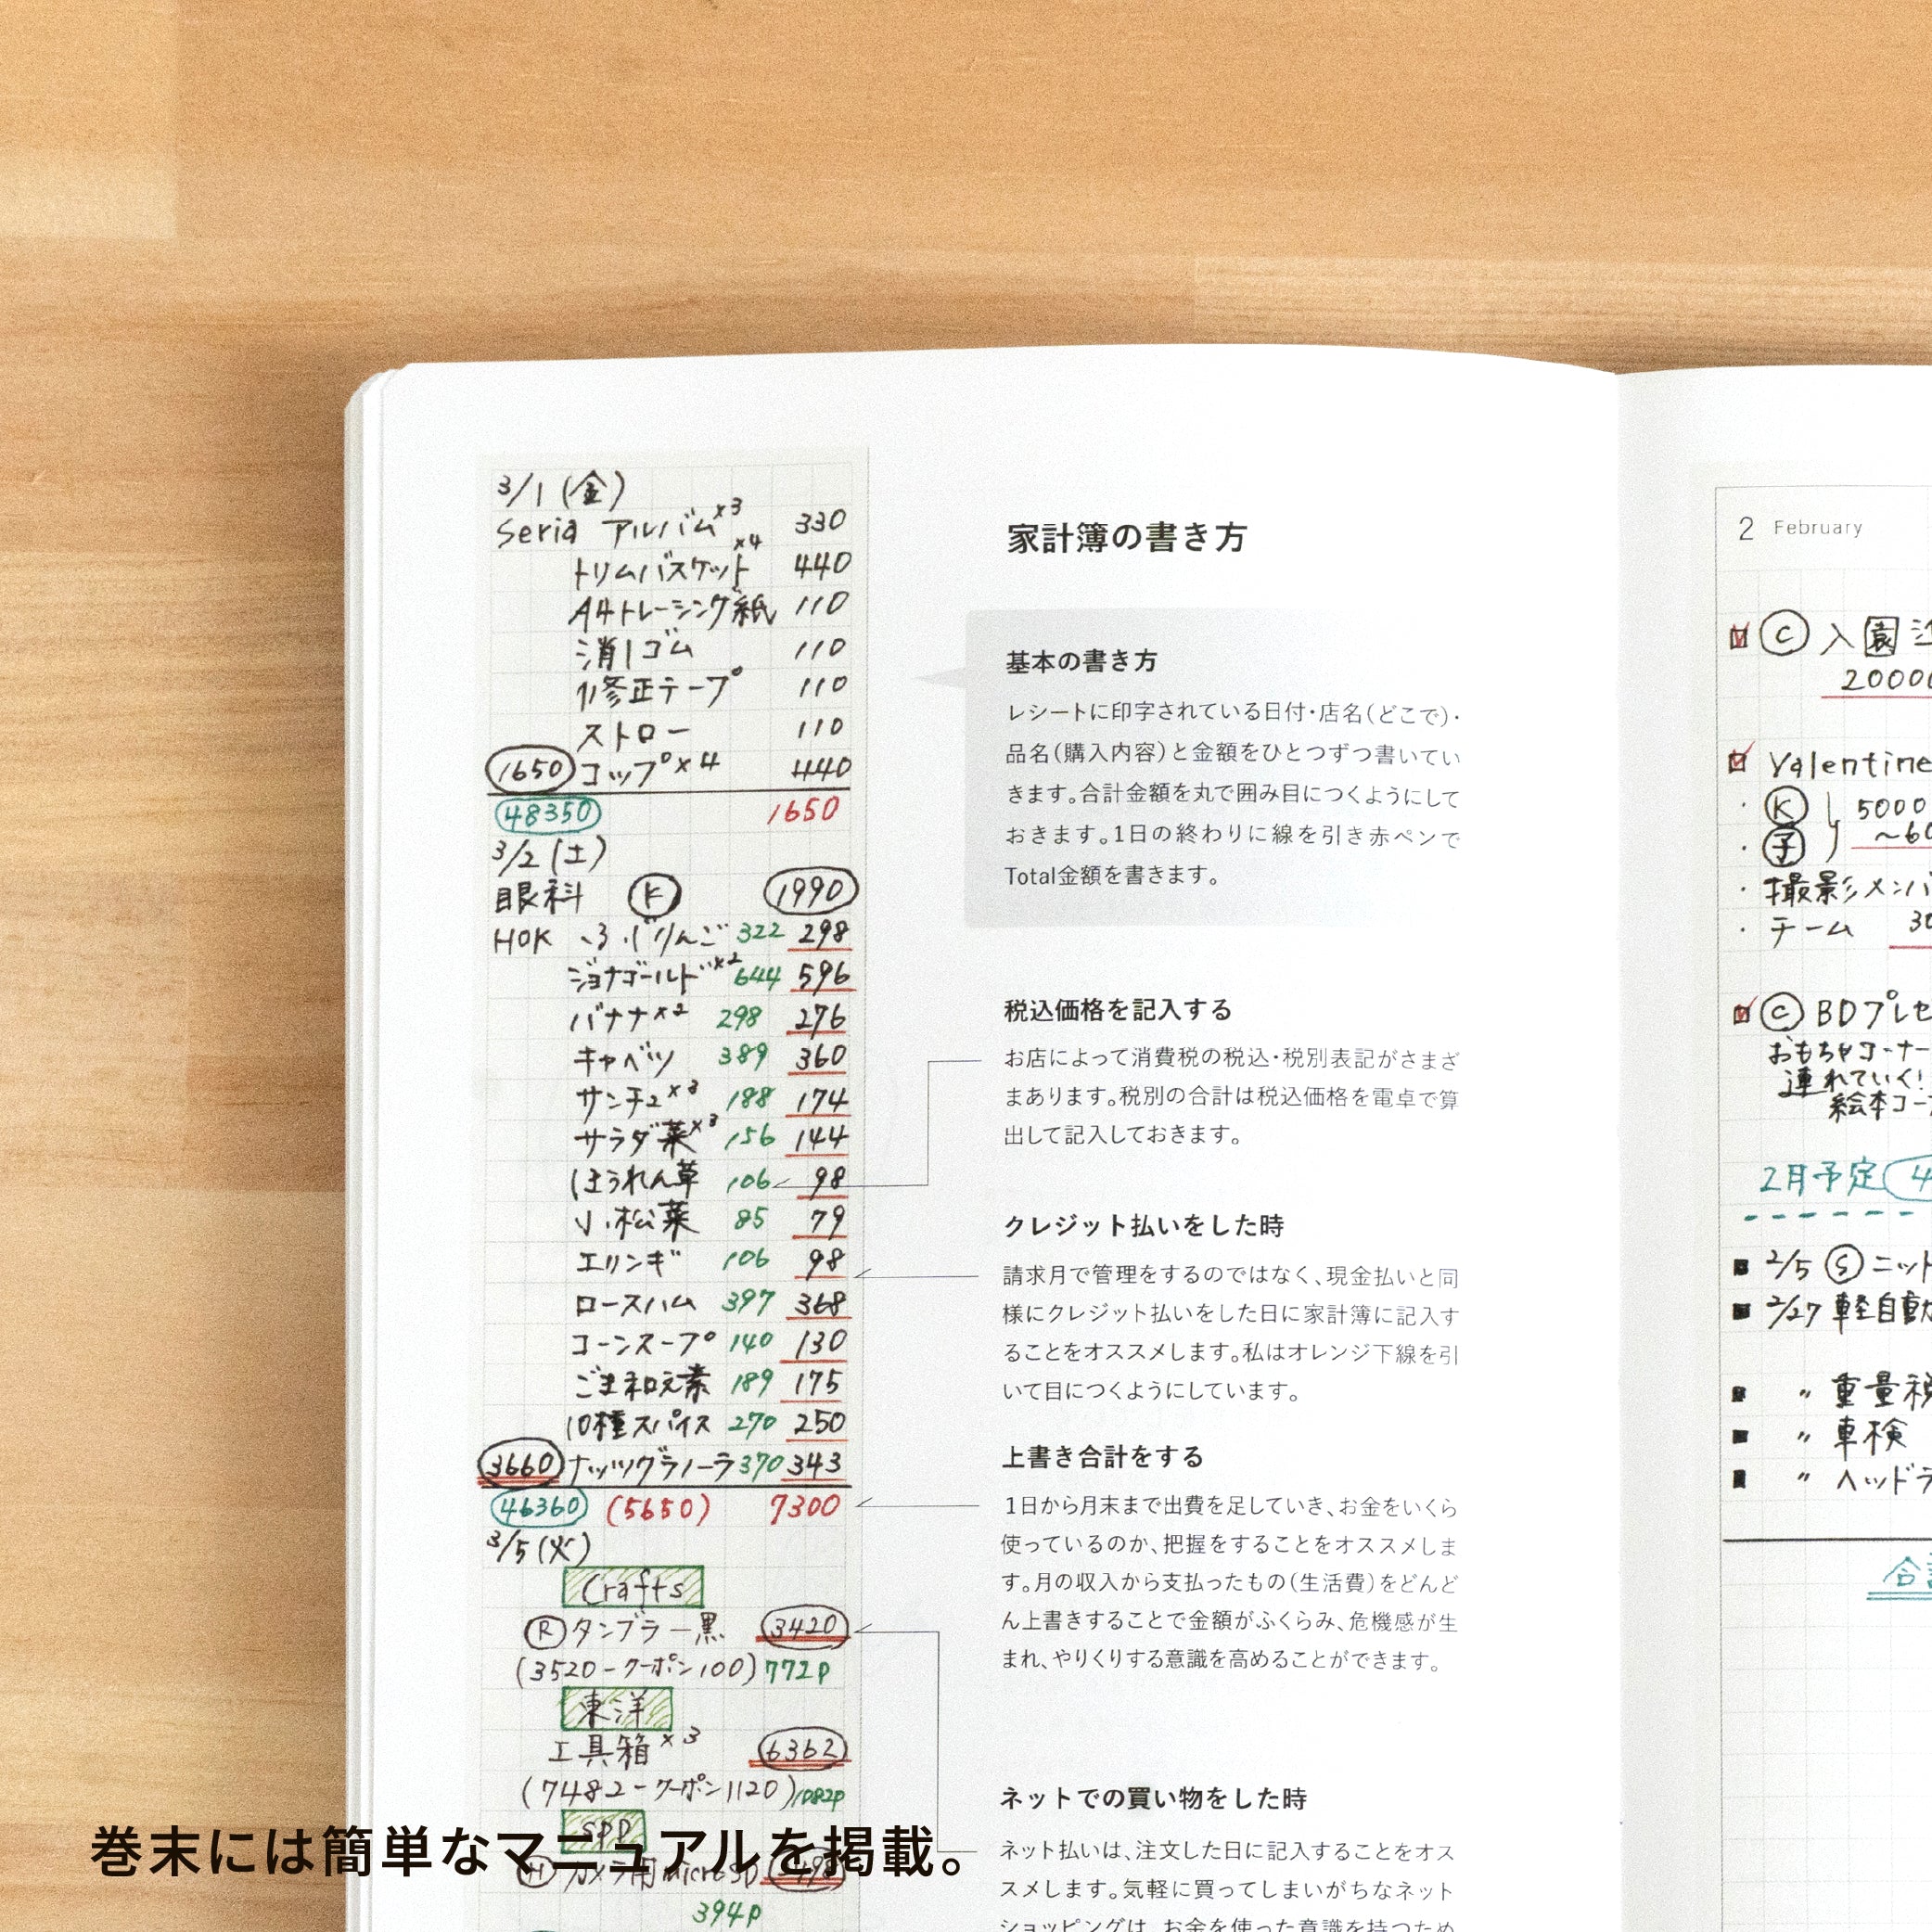 3/1(金)
Seria アルバム×3 330
トリムバスケット×4 440
A4トレーシング紙 110
消しゴム 110
修正テープ 110
ストロー 110
1650 コップ×4 440
48350 1650
3/2(土)
眼科 K 1990
HOK ふじりんご 322 298
ジョナゴールド×2 644 596
バナナ×2 298 276
キャベツ 389 360
サンチュ×3 188 174
サラダ菜×3 156 144
ほうれん草 106 98
小松菜 85 79
エリンギ 106 98
ロースハム 397 368
コーンスープ 140 130
ごま和え素 189 175
10種スパイス 270 250
3660 ナッツグラノーラ 370 343
46360 (5650) 7300
3/5(火)
Crafts
R タンブラー黒 3420
(3520-クーポン100) 772P
東洋
工具箱×3 6362
(7482-クーポン1120) 1082P
SPD
H カメラ用microSD
394P
家計簿の書き方
基本の書き方
レシートに印字されている日付・店名(どこで)・
品名(購入内容)と金額をひとつずつ書いてい
きます。合計金額を丸で囲み目につくようにして
おきます。1日の終わりに線を引き赤ペンで
Total金額を書きます。
税込価格を記入する
お店によって消費税の税込・税別表記がさまざ
まあります。税別の合計は税込価格を電卓で算
出して記入しておきます。
クレジット払いをした時
請求月で管理をするのではなく、現金払いと同
様にクレジット払いをした日に家計簿に記入す
ることをオススメします。私はオレンジ下線を引
いて目につくようにしています。
上書き合計をする
1日から月末まで出費を足していき、お金をいくら
使っているのか、把握をすることをオススメしま
す。月の収入から支払ったもの(生活費)をどんど
ん上書きすることで金額がふくらみ、危機感が生
まれ、やりくりする意識を高めることができます。
ネットでの買い物をした時
ネット払いは、注文した日に記入することをオス
スメします。気軽に買ってしまいがちなネット
ショッピングは、お金を使った意識を持つため
2 February
C 入園
20000
Valentine
K 5000
子 〜60
・撮影メンバ
・チーム 30
C BDプレセ
おもちゃコーナー
連れていく!
絵本コー
2月予定 4
2/5 S ニット
2/27 軽自動
〃 重量税
〃 車検
〃 ヘッドラ
合計
巻末には簡単なマニュアルを掲載。